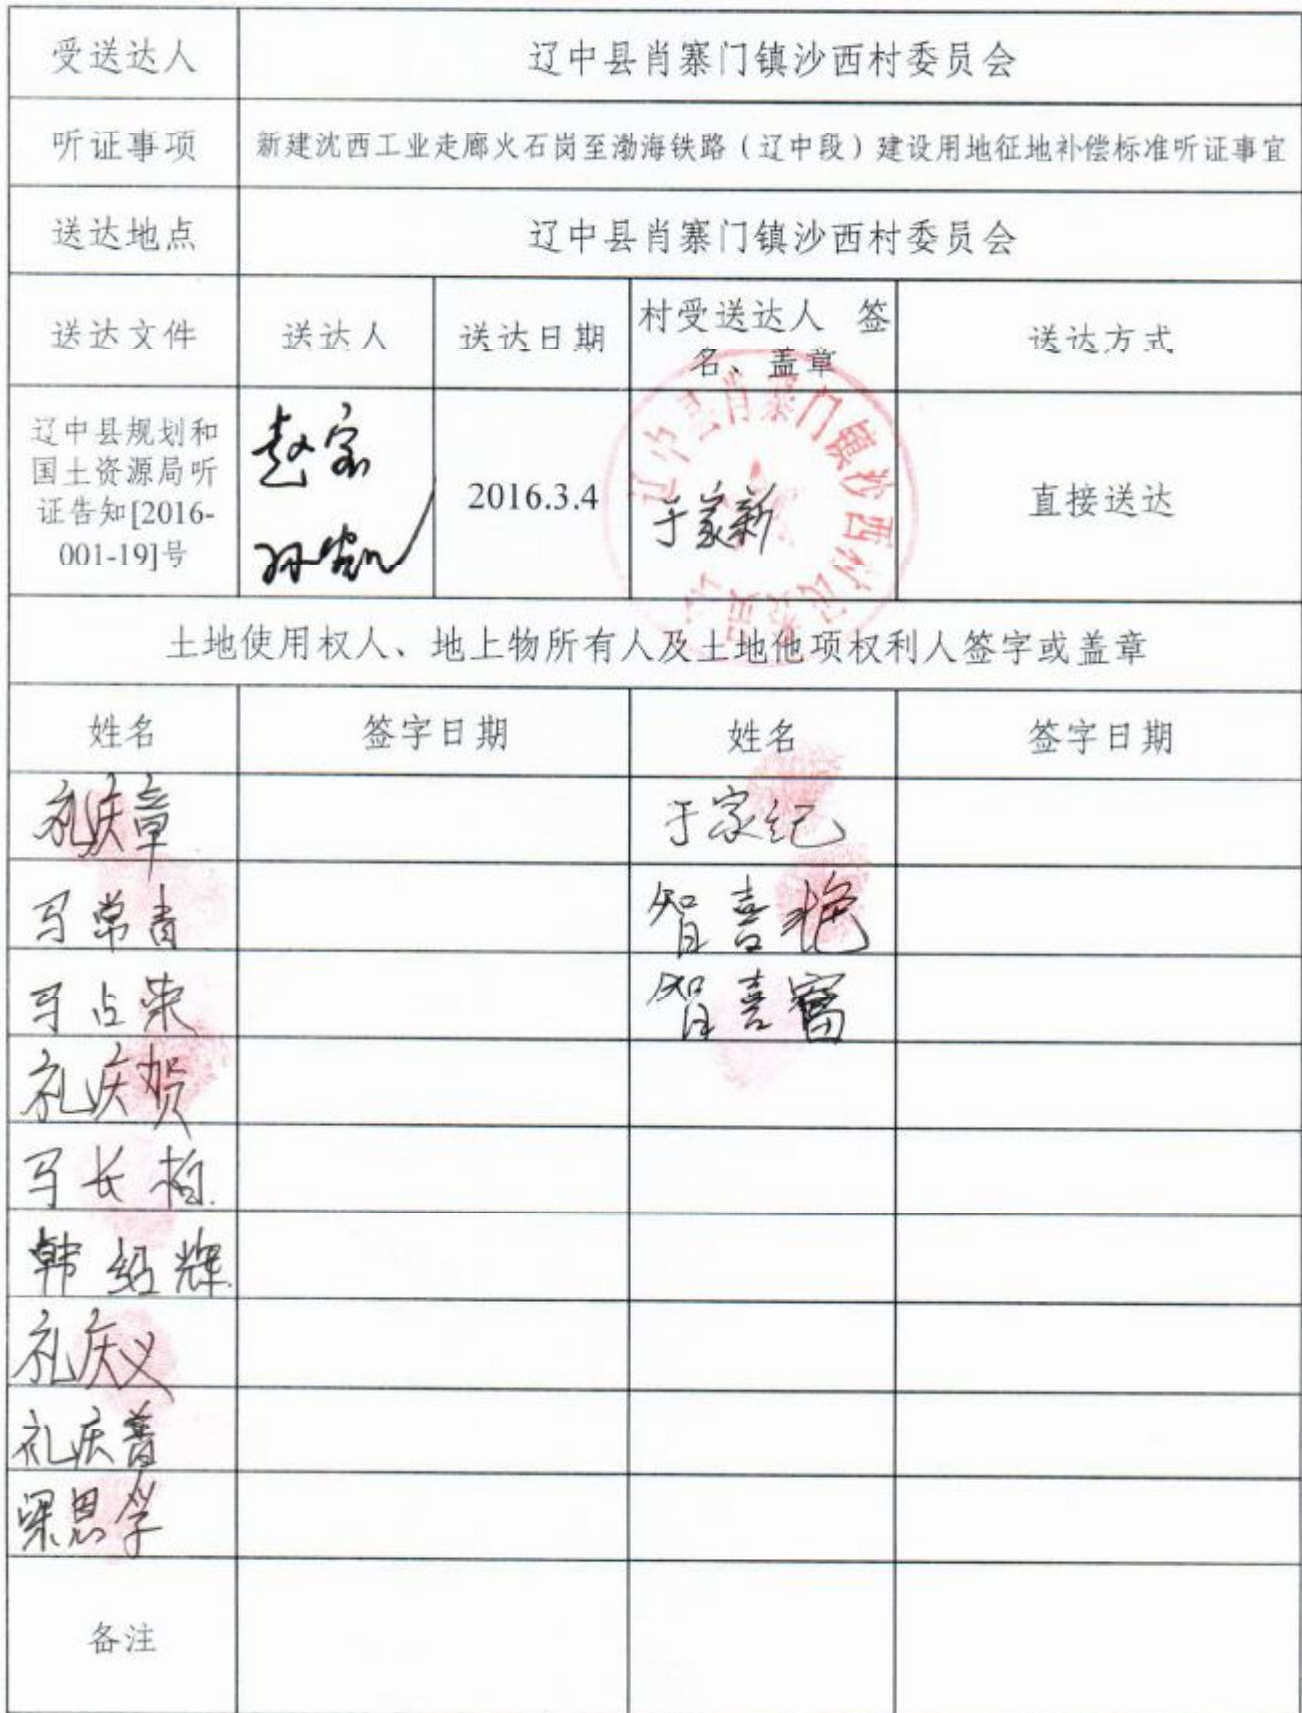 受送达人
辽中县肖寨门镇沙西村委员会
听证事项
新建沈西工业走廊火石岗至渤海铁路（辽中段）建设用地征地补偿标准听证事宜
送达地点
辽中县肖寨门镇沙西村委员会
送达文件
送达人
送达日期
村受送达人 签
名、盖章
送达方式
辽中县规划和
国土资源局听
证告知[2016-
001-19]号
赵宏
2016.3.4
于家新
辽中县肖寨门镇沙西村民委员会
直接送达
土地使用权人、地上物所有人及土地他项权利人签字或盖章
姓名
签字日期
姓名
签字日期
礼庆章
于家纪
马常青
智喜艳
马占荣
智喜富
礼庆贺
马长柏
韩绍辉
礼庆义
礼庆普
梁恩学
备注